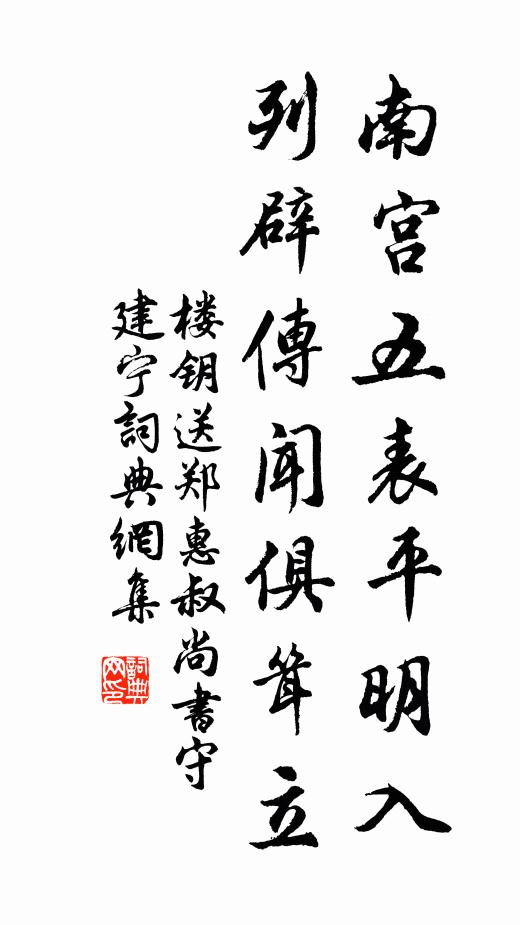 南宫五表平明入
列辟傳闻俱耸立
楼钥送郑惠叔尚書守
建宁詞典網集
詞典网印